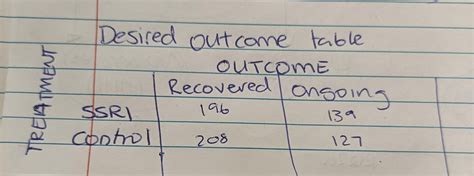 Desired outcome table
OUTCOME
TREATMENT
Recovered ongoing
SSRI 196 139
Control 208 127